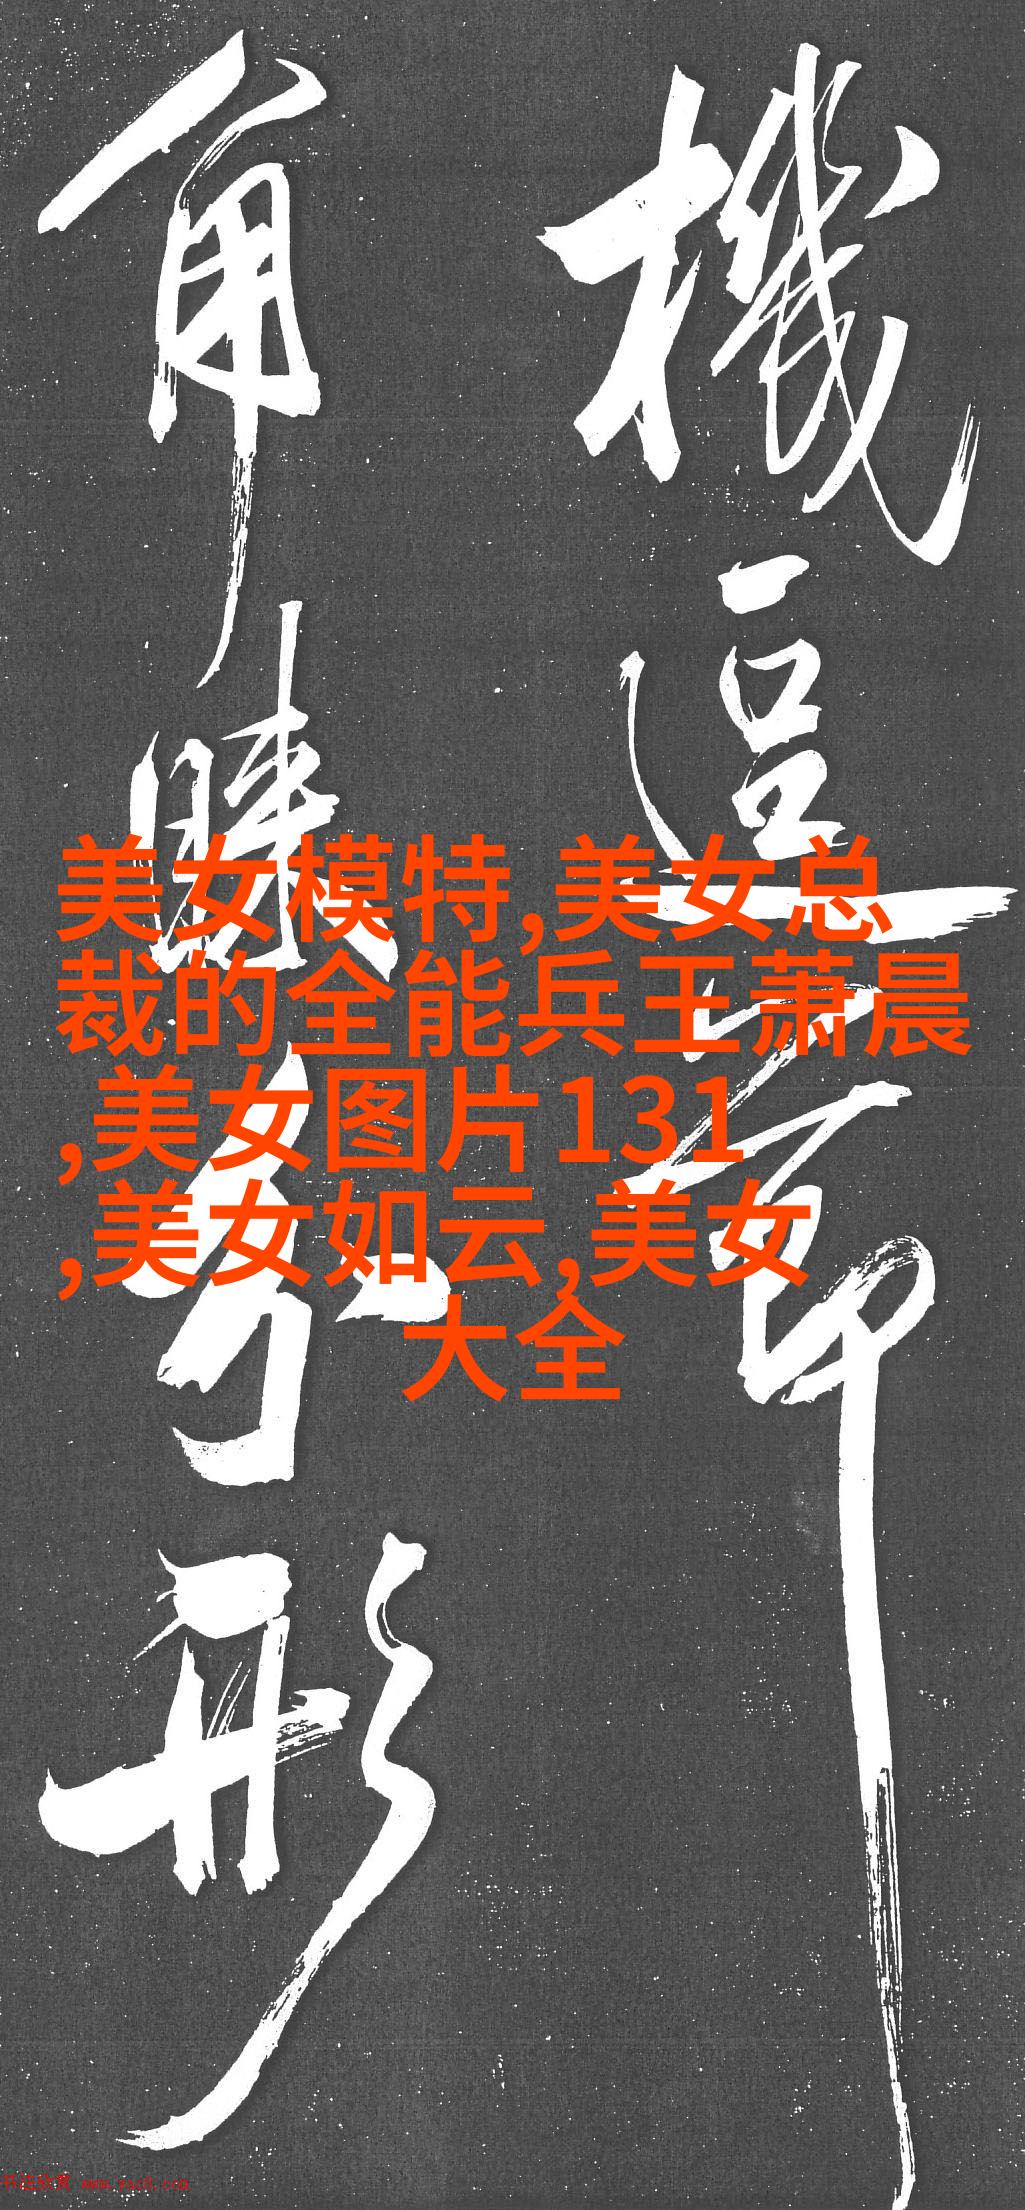 機逗節
角睐分形
美女模特,美女总
裁的全能兵王萧晨
,美女图片131
,美女如云,美女
大全
书法欣赏 www.yac8.com